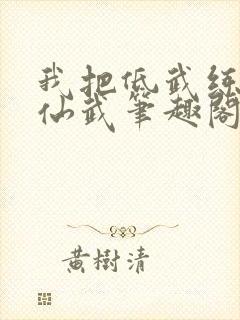 我把低武练
仙武笔趣阁
黄樹清